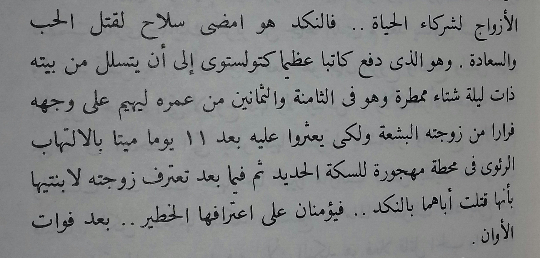 الأزواج لشركاء الحياة .. فالنكد هو امضى سلاح لقتل الحب
والسعادة . وهو الذى دفع كاتبا عظيما كتولستوى إلى أن يتسلل من بيته
ذات ليلة شتاء ممطرة وهو فى الثامنة والثمانين من عمره ليهيم على وجهه
فرارا من زوجته البشعة ولكى يعثروا عليه بعد ١١ يوما ميتا بالالتهاب
الرئوى فى محطة مهجورة للسكة الحديد ثم فيما بعد تعترف زوجته لابنتيها
بأنها قتلت أباهما بالنكد .. فيؤمنان على اعترافها الخطير .. بعد فوات
الأوان .